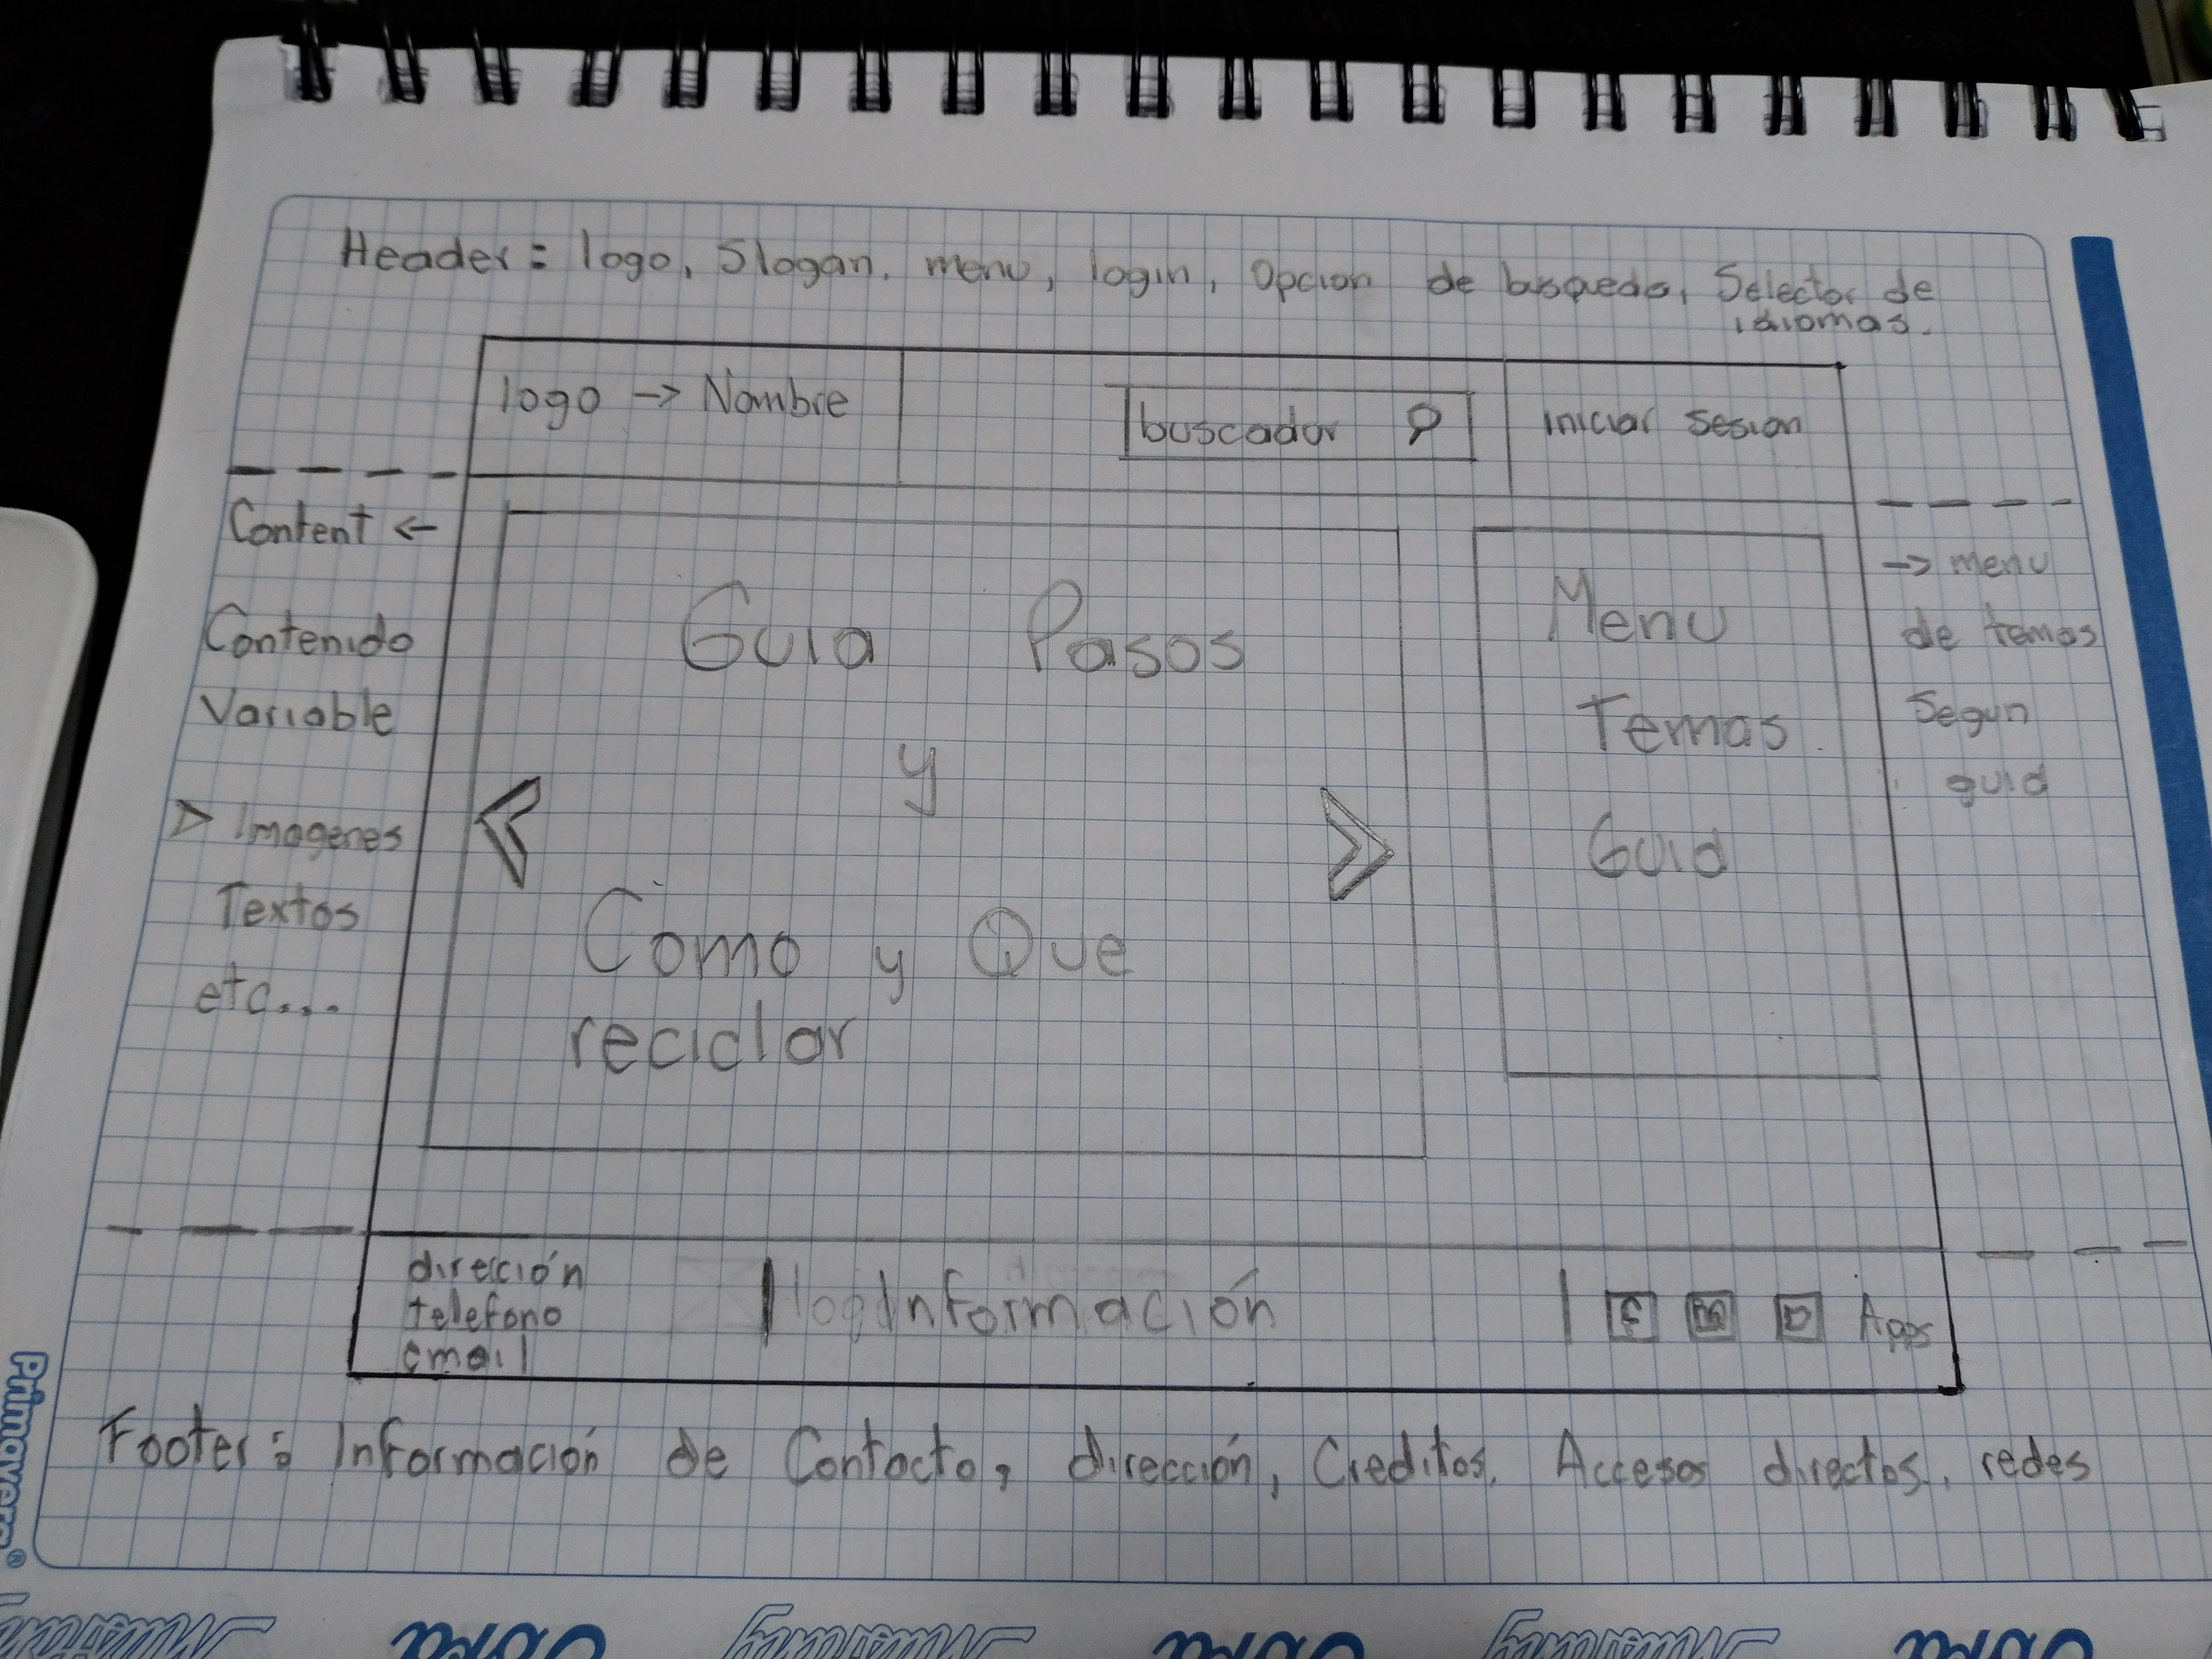 Header = logo, Slogan, menu, login, Opcion de busqueda, Selector de
idiomas.
logo -> Nombre
buscador
iniciar sesion
Content <-
Contenido
Variable
> Imagenes
Textos
etc...
Guia Pasos
y
Como y Que
reciclar
Menu
Temas
Guia
-> menu
de temas
Segun
guia
dirección
telefono
email
Información
Apps
Footer: Información de Contacto, dirección, Creditos, Accesos directos, redes
Primavera®